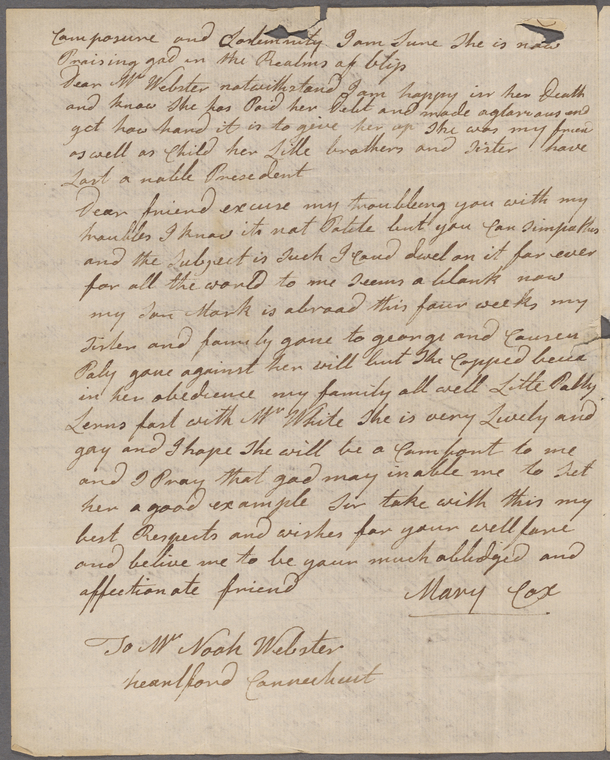 Composure and Solemnity I am Sure She is now
Praising god in the Realms of bliss
Dear Mr Webster notwithstand I am happy in her Death
and know She has Paid her Debt and made a glorious end
got how hard it is to give her up She was my friend
as well as Child her Litle brothers and Sister have
Lost a noble Presedent
Dear friend excuse my troubleing you with my
troubles I know its not Polite but you Can Simpathis
and the Subject is Such I Coud dwel on it for ever
for all the world to me Seems a blank now
my Son Mark is abroad this four weeks my
Sister and family gone to george and Cousen
Paly gone against her will but She Copped
in her obedience my family all well Litle Patty
Lerns fast with Mrs White She is very Lively and
gay and I hope She will be a Comfort to me
and I Pray that god may inable me to Set
her a good example Sir take with this my
best Respects and wishes for your wellfare
and belive me to be your much oblidged and
affectionate friend Mary Cox
To Mr Noah Webster
heartford Connecticut